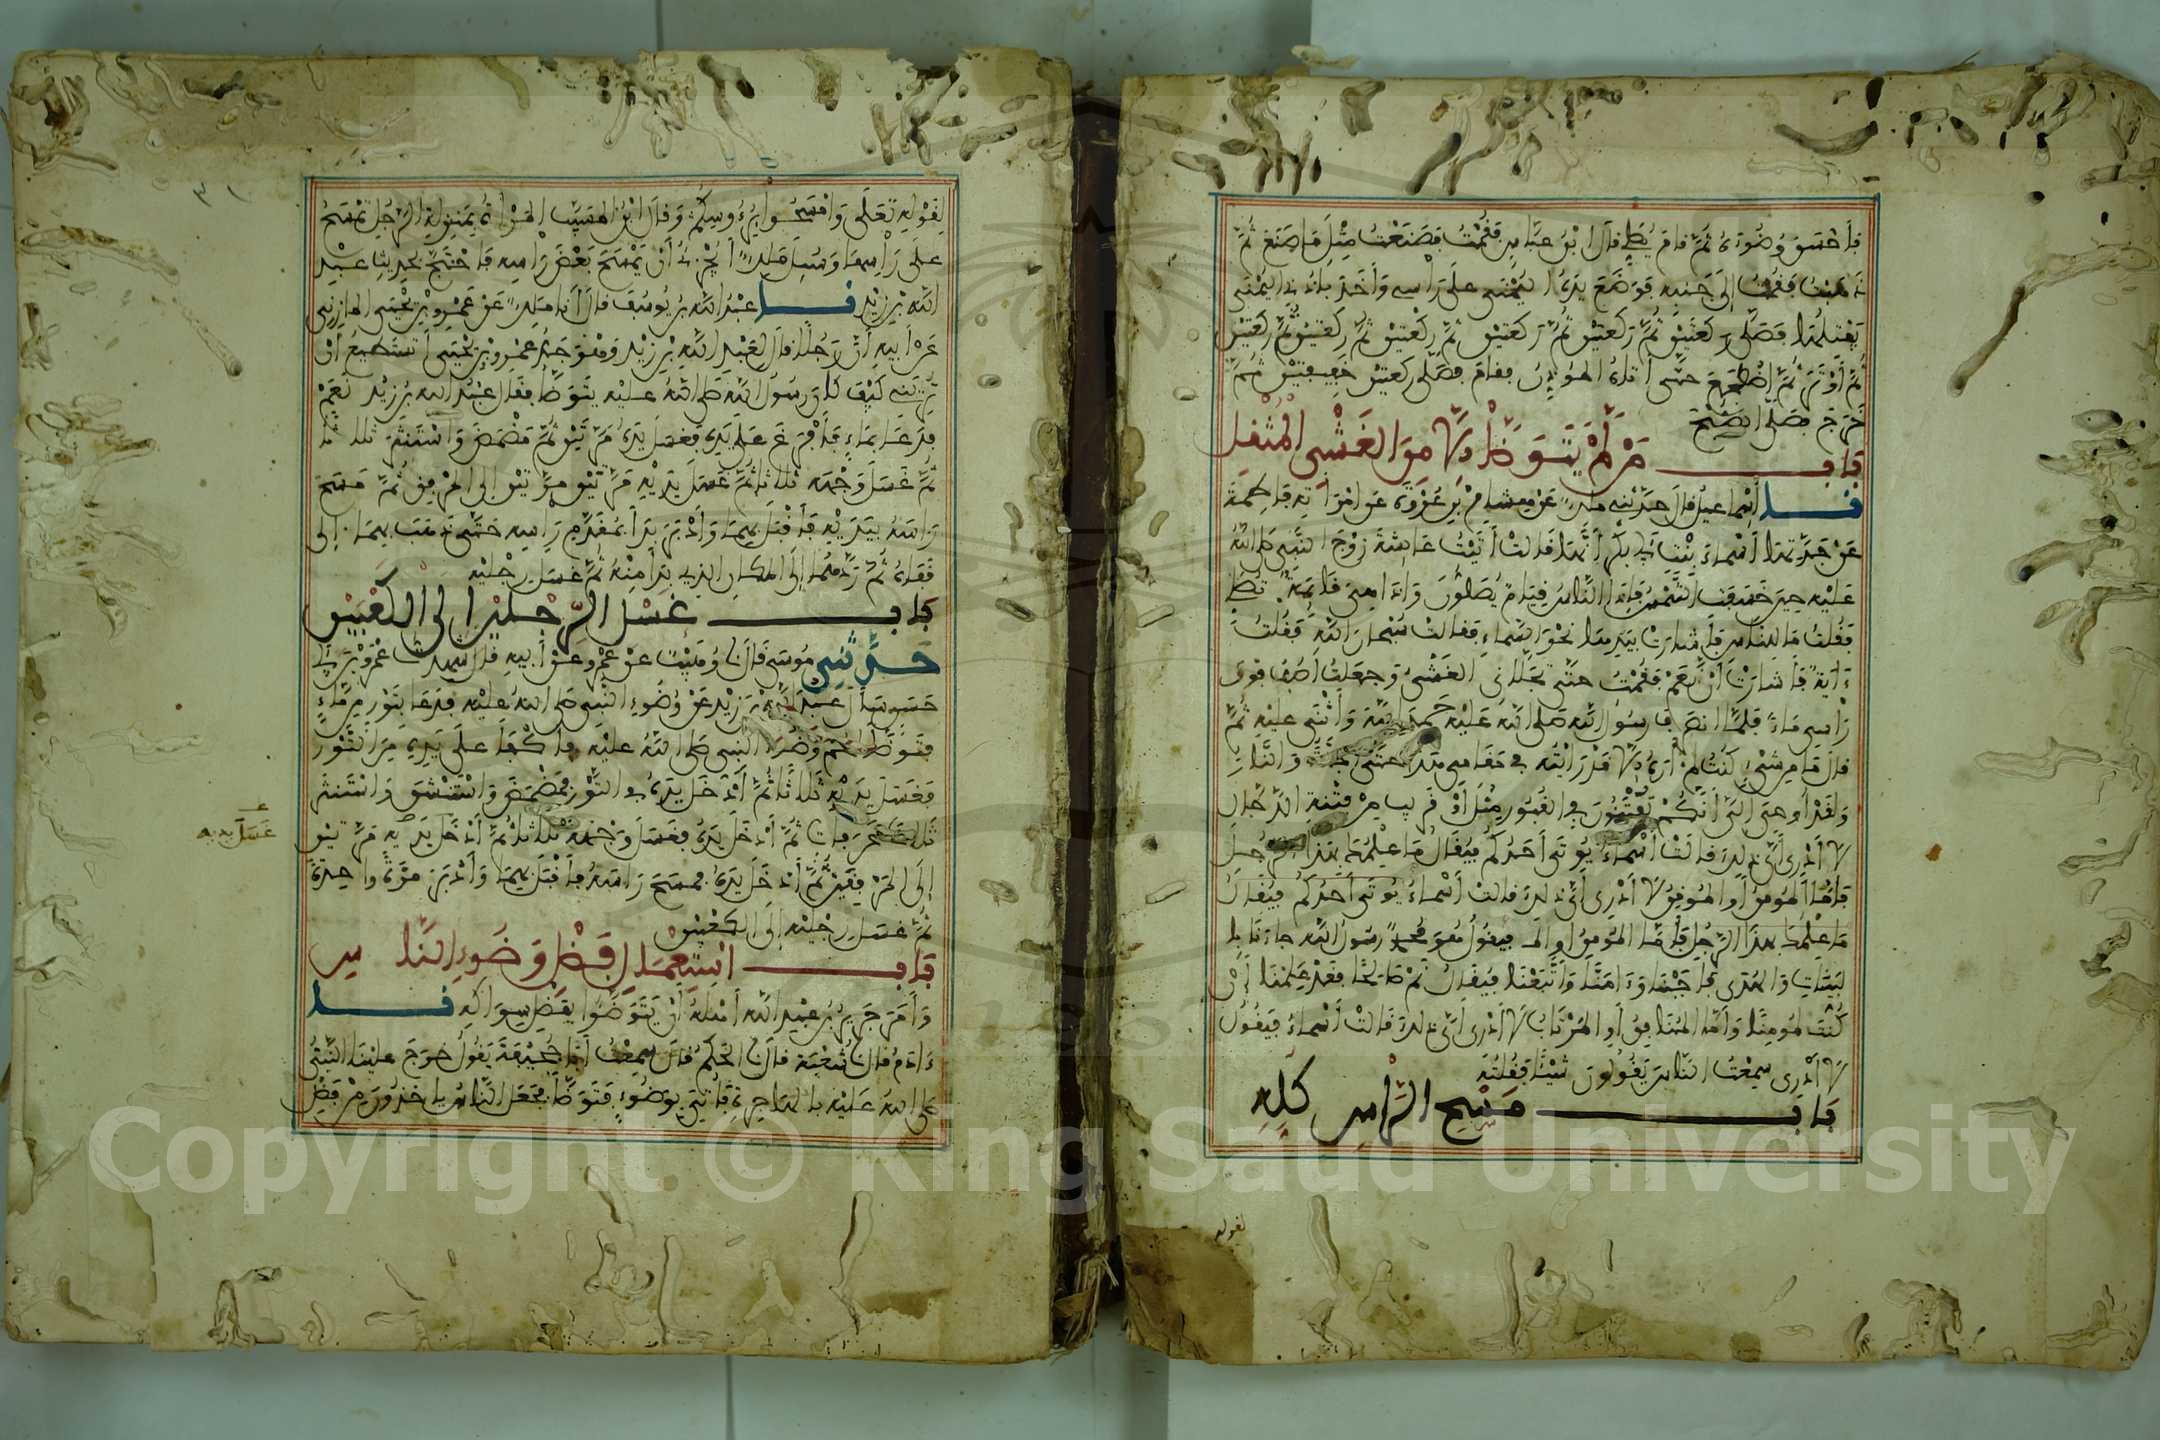 فأحسن وضوءه ثم قام يصلي قال ابن عباس فقمت فصنعت مثل ما صنع ثم
ذهبت فقمت إلى جنبه فوضع يده اليمنى على رأسي وأخذ بأذني اليمنى
يفتلها فصلى ركعتين ثم ركعتين ثم ركعتين ثم ركعتين ثم ركعتين ثم ركعتين
ثم أوتر ثم اضطجع حتى أتاه المؤذن فقام فصلى ركعتين خفيفتين ثم
خرج فصلى الصبح
باب من لم يتوضأ إلا من الغشي المثقل
نا إسماعيل قال حدثني ملك عن هشام بن عروة عن امرأته فاطمة
عن جدتها أسماء بنت أبي بكر أنها قالت أتيت عائشة زوج النبي صلى الله
عليه حين خسفت الشمس فإذا الناس قيام يصلون وإذا هي قائمة تصلي
فقلت ما للناس فأشارت بيدها نحو السماء فقالت سبحان الله فقلت
ءاية فأشارت أن نعم فقمت حتى تجلاني الغشي وجعلت أصب فوق
رأسي ماء فلما انصرف رسول الله صلى الله عليه حمد الله وأثنى عليه ثم
قال ما من شيء كنت لم أره إلا قد رأيته في مقامي هذا حتى الجنة والنار
ولقد أوحي إلي أنكم تفتنون في القبور مثل أو قريب من فتنة الدجال
لا أدري أي ذلك قالت أسماء يوتى أحدكم فيقال ما علمك بهذا الرجل
فأما المومن أو الموقن لا أدري أي ذلك قالت أسماء يوتى أحدكم فيقال
ما علمك بهذا الرجل فأما المومن أو الم فيقول هو محمد رسول الله جاءنا با
لبينات والهدى فأجبنا وءامنا واتبعنا فيقال نم صالحا فقد علمنا إن
كنت لمومنا وأما المنافق أو المرتاب لا أدري أي ذلك قالت أسماء فيقول
لا أدري سمعت الناس يقولون شيئا فقلته
باب مسح الرأس كله
لقوله
٣١
لقوله تعلى وامسحوا برءوسكم وقال ابن المسيب المرأة بمنزلة الرجل تمسح
على رأسها وسئل ملك أيجزئ أن يمسح بعض رأسه فاحتج بحديث عبد
الله بن زيد نا عبد الله بن يوسف قال أنا ملك عن عمرو بن يحيى المازني
عن أبيه أن رجلا قال لعبد الله بن زيد وهو جد عمرو بن يحيى أتستطيع أن
تريني كيف كان رسول الله صلى الله عليه يتوضأ فقال عبد الله بن زيد نعم
فدعا بماء فأفرغ على يديه فغسل يده مرتين ثم مضمض واستنثر ثلاثا
ثم غسل وجهه ثلاثا ثم غسل يديه مرتين مرتين إلى المرفق ثم مسح
رأسه بيديه فأقبل بهما وأدبر بدأ بمقدم رأسه حتى ذهب بهما إلى
قفاه ثم ردهما إلى المكان الذي بدأ منه ثم غسل رجليه
باب غسل الرجلين إلى الكعبين
حدثني موسى قال نا وهيب عن عمرو عن أبيه قال شهدت عمرو بن أبي
حسن سأل عبد الله بن زيد عن وضوء النبي صلى الله عليه فدعا بتور من ماء
فتوضأ لهم وضوء النبي صلى الله عليه فأكفأ على يده من التور
فغسل يديه ثلاثا ثم أدخل يده في التور فمضمض واستنشق واستنثر
ثلاث غرفات ثم أدخل يده فغسل وجهه ثلاثا ثم أدخل يديه مرتين
غسل يديه
إلى المرفقين ثم أدخل يده فمسح رأسه فأقبل بهما وأدبر مرة واحدة
ثم غسل رجليه إلى الكعبين
باب استعمال فضل وضوء الناس
وأمر جرير بن عبد الله أهله أن يتوضوا بفضل سواكه نا
ءادم قال نا شعبة قال نا الحكم قال سمعت أبا جحيفة يقول خرج علينا النبي
صلى الله عليه بالهاجرة فأتي بوضوء فتوضأ فجعل الناس ياخذون من فضل
Copyright © King Saud University